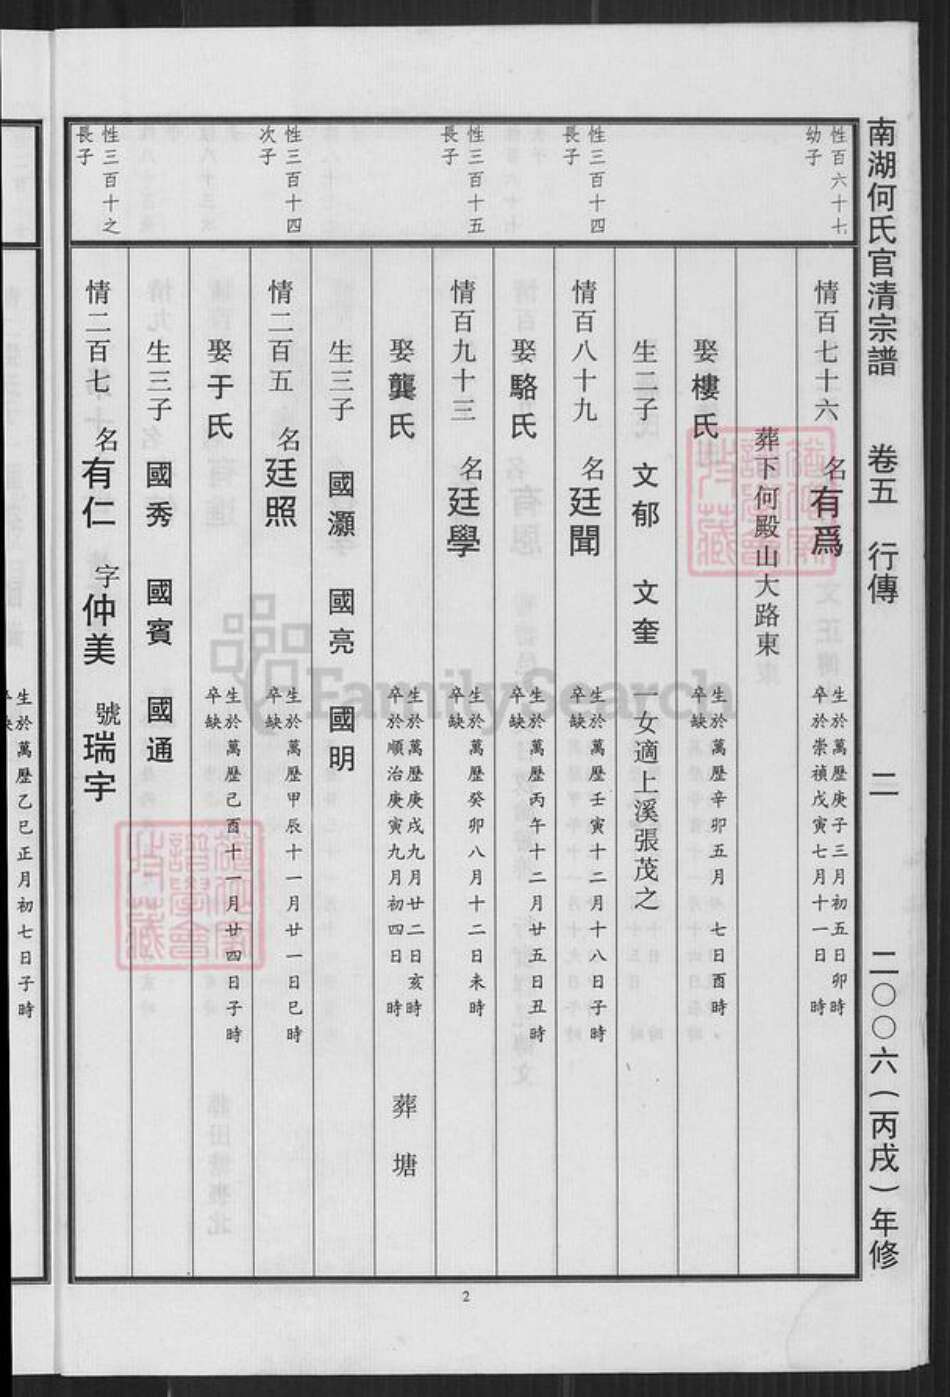 南湖何氏官清宗譜 卷五 行傳 二 二〇〇六(丙戌)年修
性百六十七
幼子
情百七十六 名有爲
生於萬歷庚子三月初五日卯時
卒於崇禎戊寅七月十一日 時
葬下何殿山大路東
娶樓氏
生於萬歷辛卯五月 七日酉時
卒缺
生二子 文郁 文奎 一女適上溪張茂之
性三百十四
長子
情百八十九 名廷聞
生於萬歷壬寅十二月十八日子時
卒缺
娶駱氏
生於萬歷丙午十二月廿五日丑時
卒缺
性三百十五
長子
情百九十三 名廷學
生於萬歷癸卯八月十二日未時
卒缺
娶龔氏
生於萬歷庚戌九月廿二日亥時
卒於順治庚寅九月初四日 時
葬塘
生三子 國灝 國亮 國明
性三百十四
次子
情二百五 名廷照
生於萬歷甲辰十一月廿一日巳時
卒缺
娶于氏
生於萬歷己酉十一月廿四日子時
卒缺
生三子 國秀 國賓 國通
性三百十之
長子
情二百七 名有仁 字仲美 號瑞宇
生於萬歷乙巳正月初七日子時
2
FamilySearch